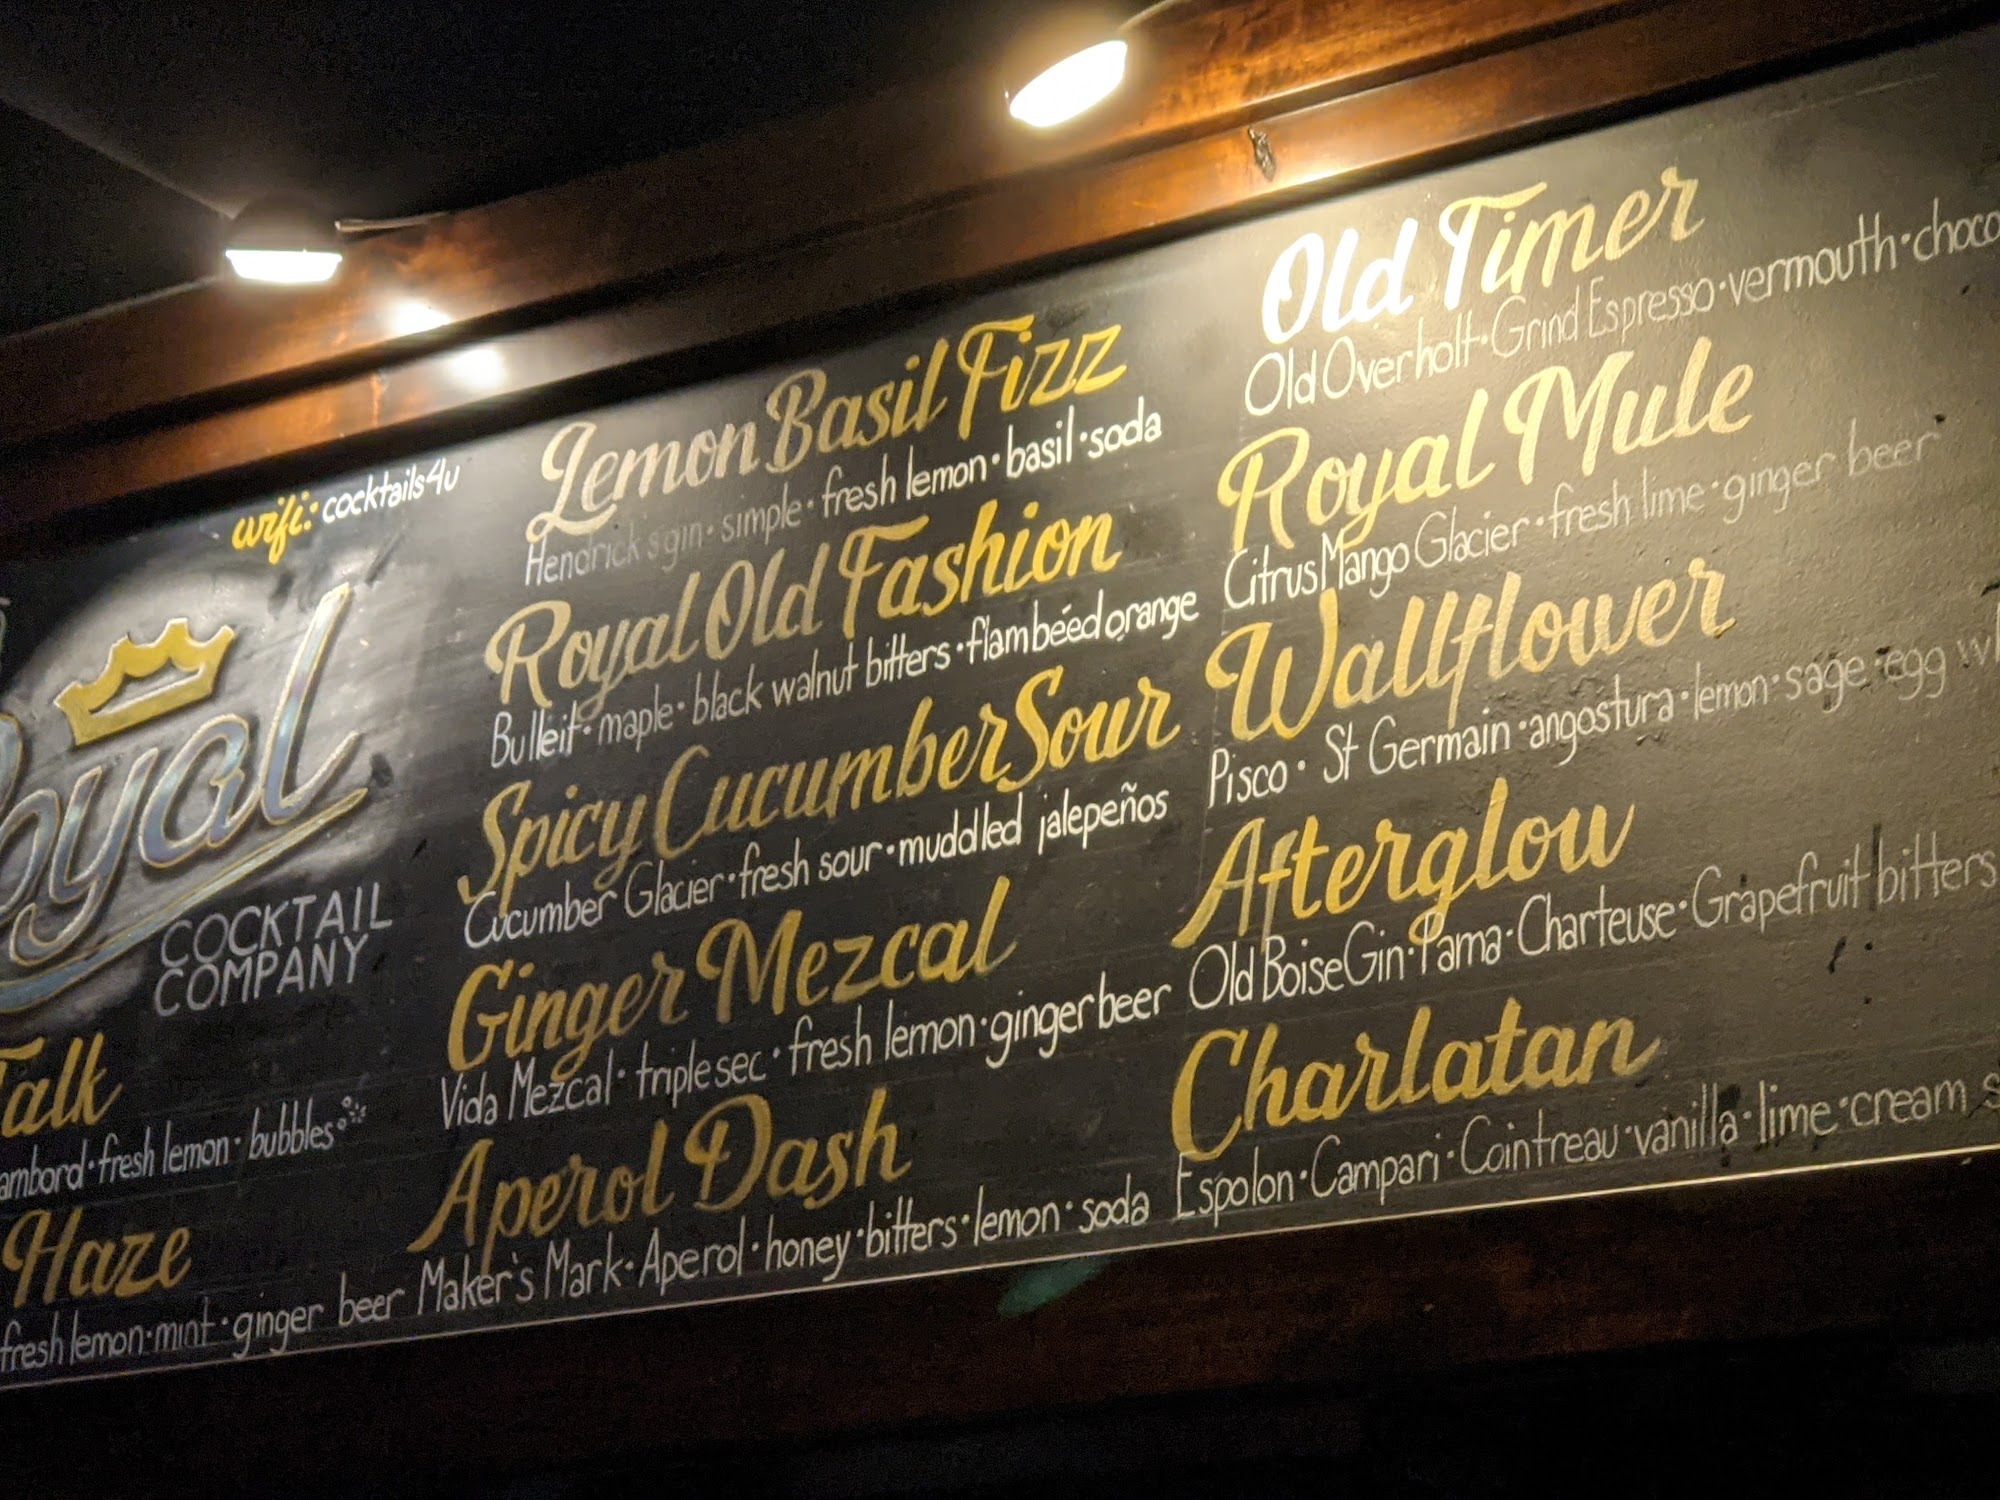 wifi: cocktails4u
Royal
COCKTAIL
COMPANY
Talk
fresh lemon · bubbles
Haze
fresh lemon · mint · ginger beer
Lemon Basil Fizz
Hendrick's gin · simple · fresh lemon · basil · soda
Royal Old Fashion
Bulleit · maple · black walnut bitters · flambéed orange
Spicy Cucumber Sour
Cucumber Glacier · fresh sour · muddled jalepeños
Ginger Mezcal
Vida Mezcal · triple sec · fresh lemon · ginger beer
Aperol Dash
Maker's Mark · Aperol · honey · bitters · lemon · soda
Old Timer
Old Overholt · Grind Espresso · vermouth · choco
Royal Mule
Citrus Mango Glacier · fresh lime · ginger beer
Wallflower
Pisco · St Germain · angostura · lemon · sage · egg
Afterglow
Old Boise Gin · Pama · Charteuse · Grapefruit bitters
Charlatan
Espolon · Campari · Cointreau · vanilla · lime · cream